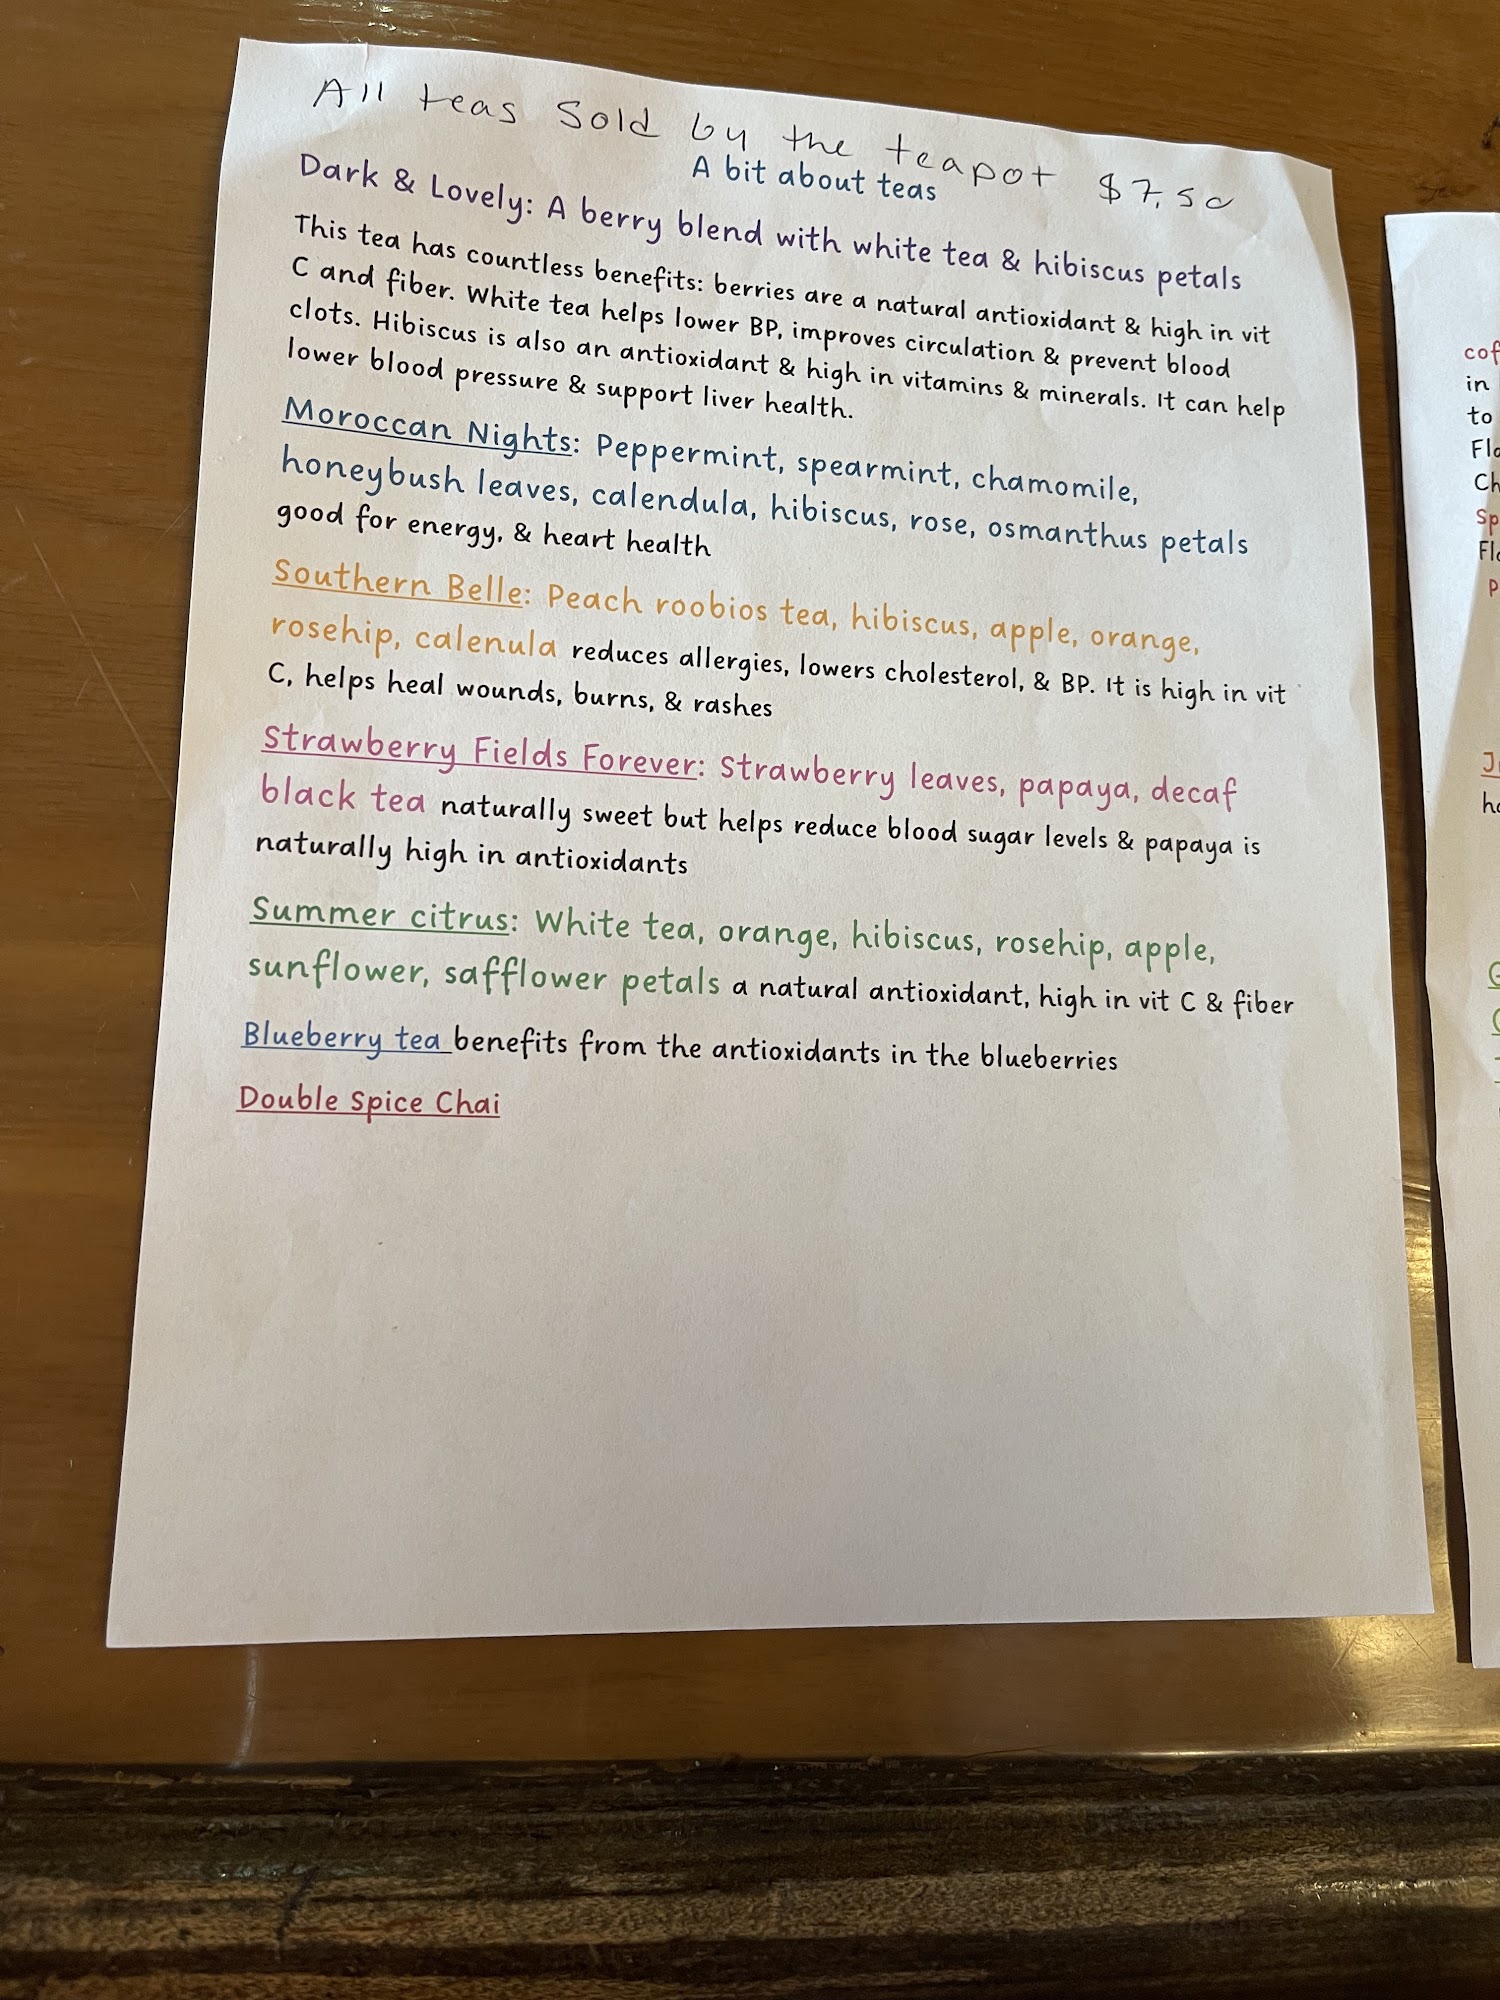 All teas sold by the teapot $7.50
A bit about teas
Dark & Lovely: A berry blend with white tea & hibiscus petals
This tea has countless benefits: berries are a natural antioxidant & high in vit
C and fiber. White tea helps lower BP, improves circulation & prevent blood
clots. Hibiscus is also an antioxidant & high in vitamins & minerals. It can help
lower blood pressure & support liver health.
Moroccan Nights: Peppermint, spearmint, chamomile,
honeybush leaves, calendula, hibiscus, rose, osmanthus petals
good for energy, & heart health
Southern Belle: Peach roobios tea, hibiscus, apple, orange,
rosehip, calenula reduces allergies, lowers cholesterol, & BP. It is high in vit
C, helps heal wounds, burns, & rashes
Strawberry Fields Forever: Strawberry leaves, papaya, decaf
black tea naturally sweet but helps reduce blood sugar levels & papaya is
naturally high in antioxidants
Summer citrus: White tea, orange, hibiscus, rosehip, apple,
sunflower, safflower petals a natural antioxidant, high in vit C & fiber
Blueberry tea benefits from the antioxidants in the blueberries
Double Spice Chai
in
to